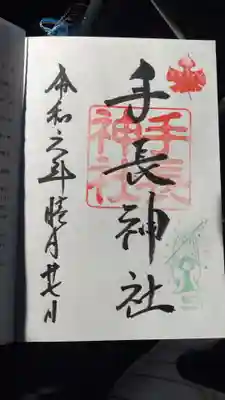 手長神社
手長神社
令和六年睦月廿七日